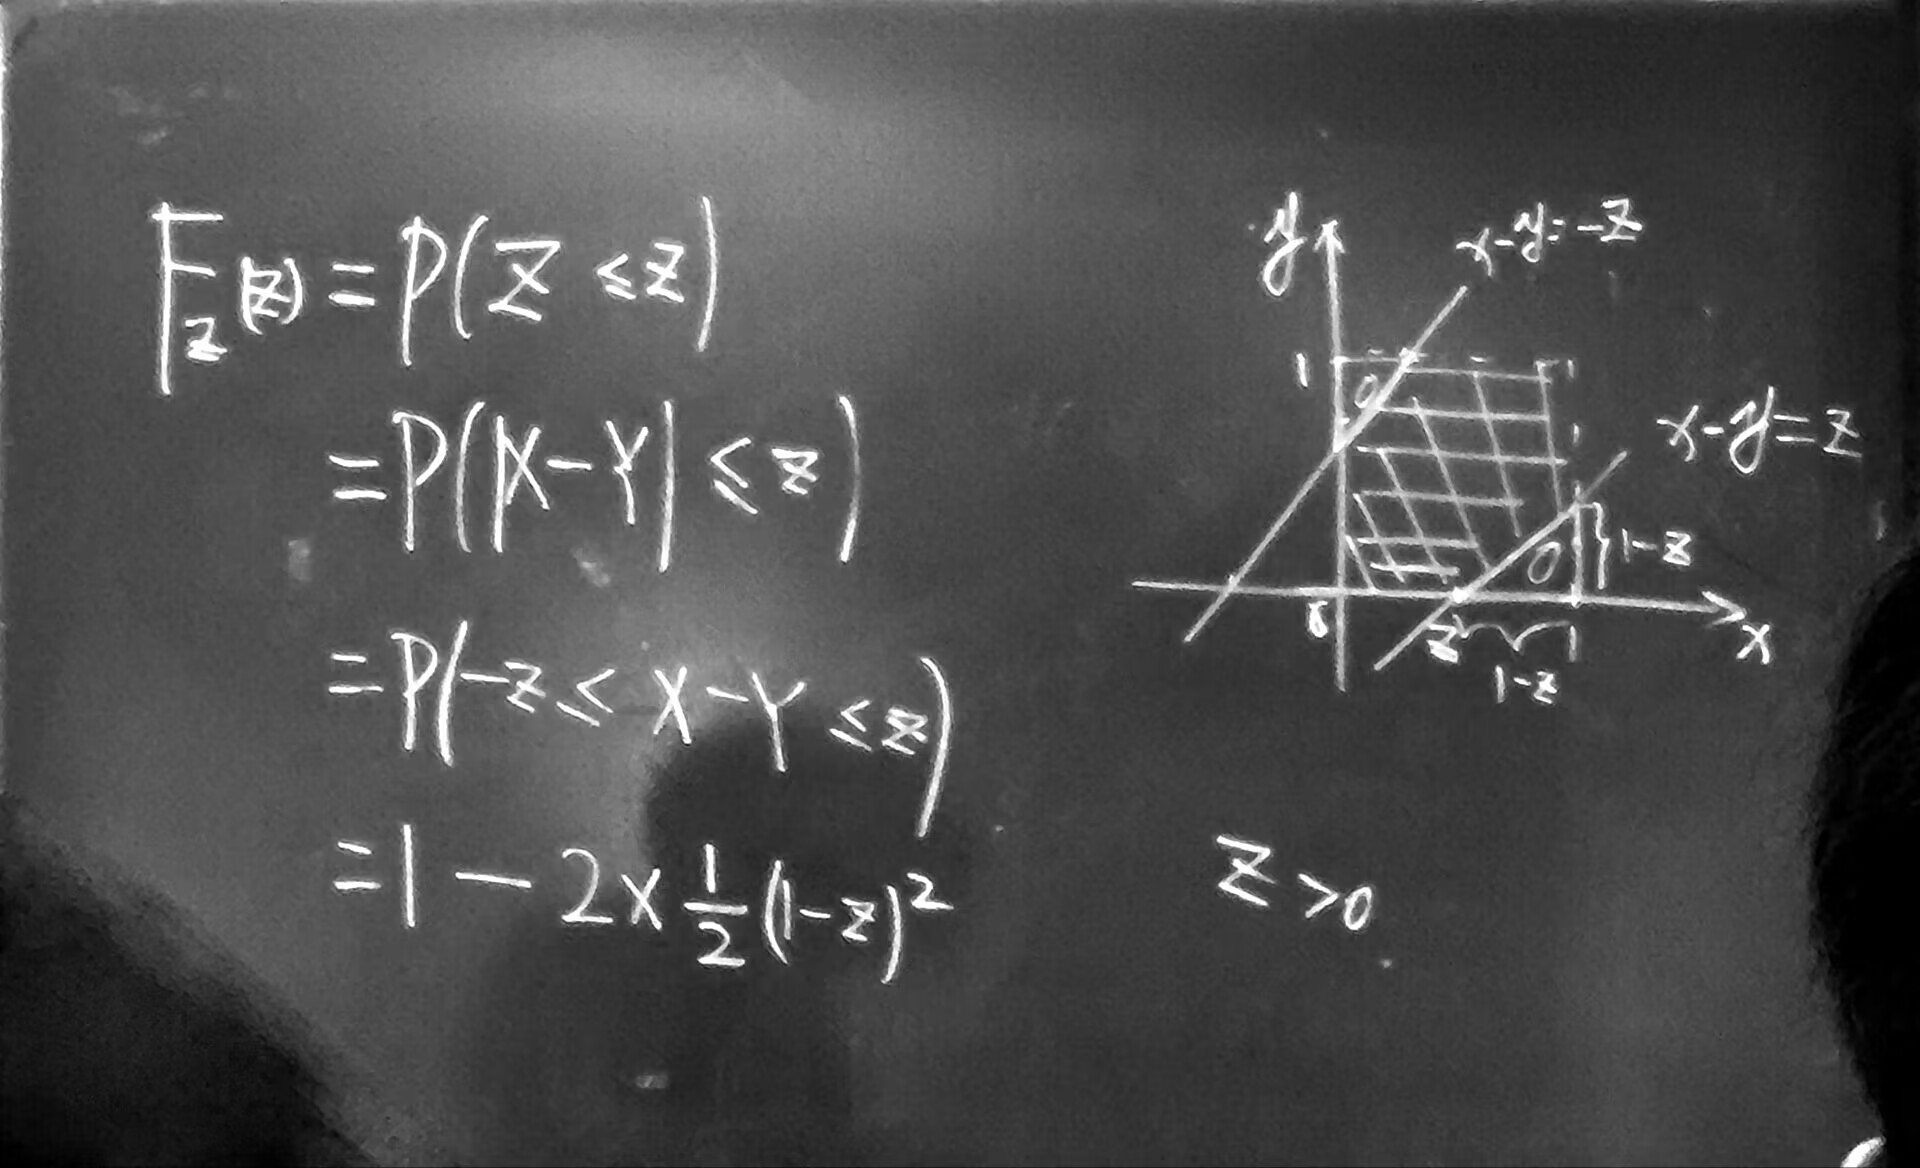 F_Z(z) = P(Z ≤ z)
= P(|X-Y| ≤ z)
= P(-z ≤ X-Y ≤ z)
= 1 - 2 × 1/2 (1-z)²
y
x-y=-z
1
0
x-y=z
0
1-z
z
1
x
1-z
z>0